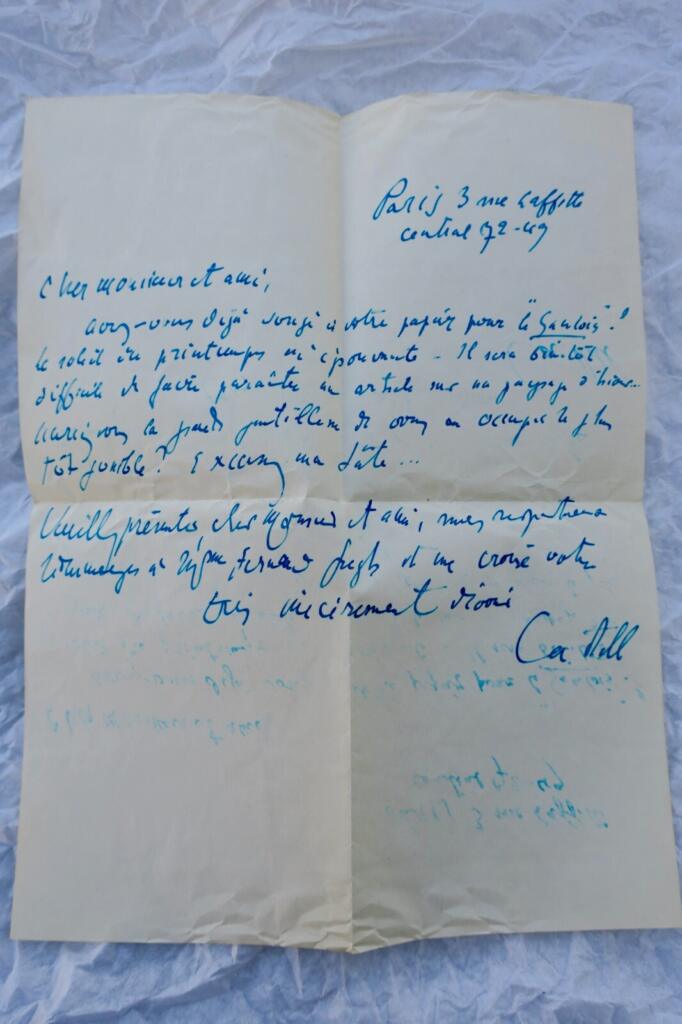 Paris 3 rue Laffitte
central 72-49
Cher monsieur et ami,
avez-vous déjà songé à votre papier pour "le Gaulois"?
le soleil du printemps m'épouvante - Il sera bientôt
difficile de faire paraître un article sur un paysage d'hiver...
auriez vous la grande gentillesse de vous en occuper le plus
tôt possible? Excusez ma hâte...
Veuillez présenter cher Monsieur et ami, mes respectueux
hommages à Mme Fernand Gregh et me croire votre
très sincèrement dévoué